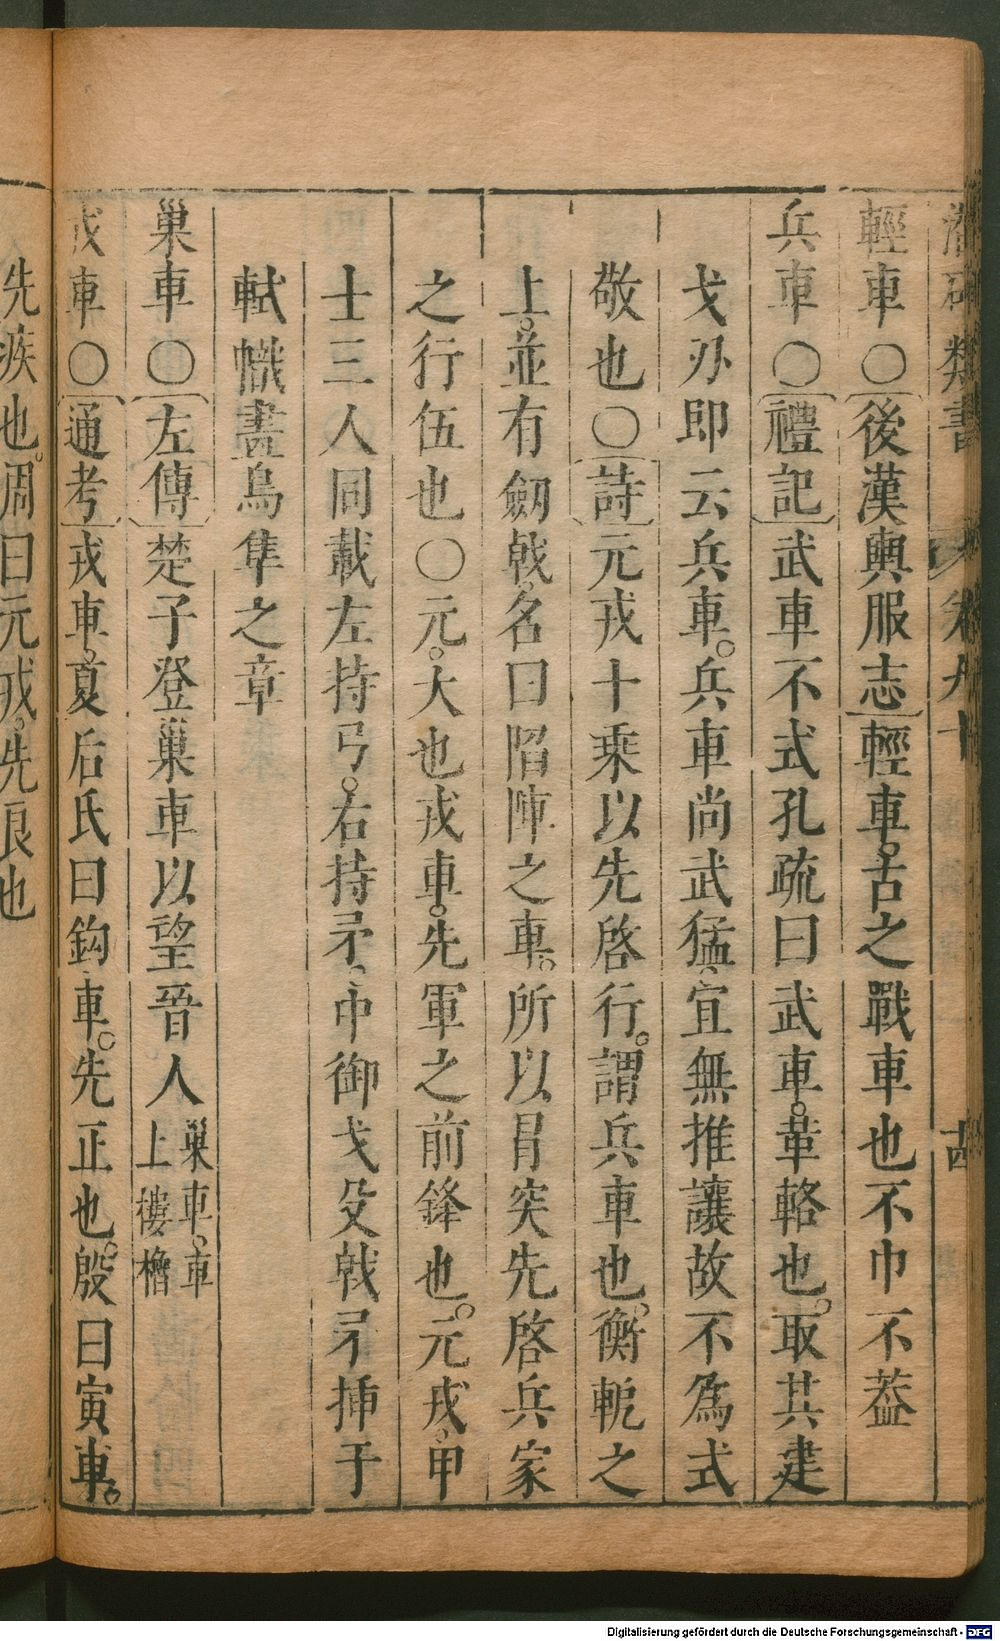 潛確類書 卷九十
輕車〇後漢輿服志輕車古之戰車也不巾不葢
兵車〇禮記武車不式孔疏曰武車革輅也取其建
戈刃即云兵車兵車尚武猛宜無推讓故不為式
敬也〇詩元戎十乗以先啓行謂兵車也衡軛之
上並有劒戟名曰陷陣之車所以冒突先啓兵家
之行伍也〇元大也戎車先軍之前鋒也元戎甲
士三人同載左持弓右持矛中御戈殳戟矛揷于
軾幟畫鳥隼之章
巢車〇左傳楚子登巢車以望晉人巢車車上樓櫓
戎車〇通考戎車夏后氏曰鈎車先正也殷曰寅車
先疾也周曰元戎先良也
Digitalisierung gefördert durch die Deutsche Forschungsgemeinschaft - DFG